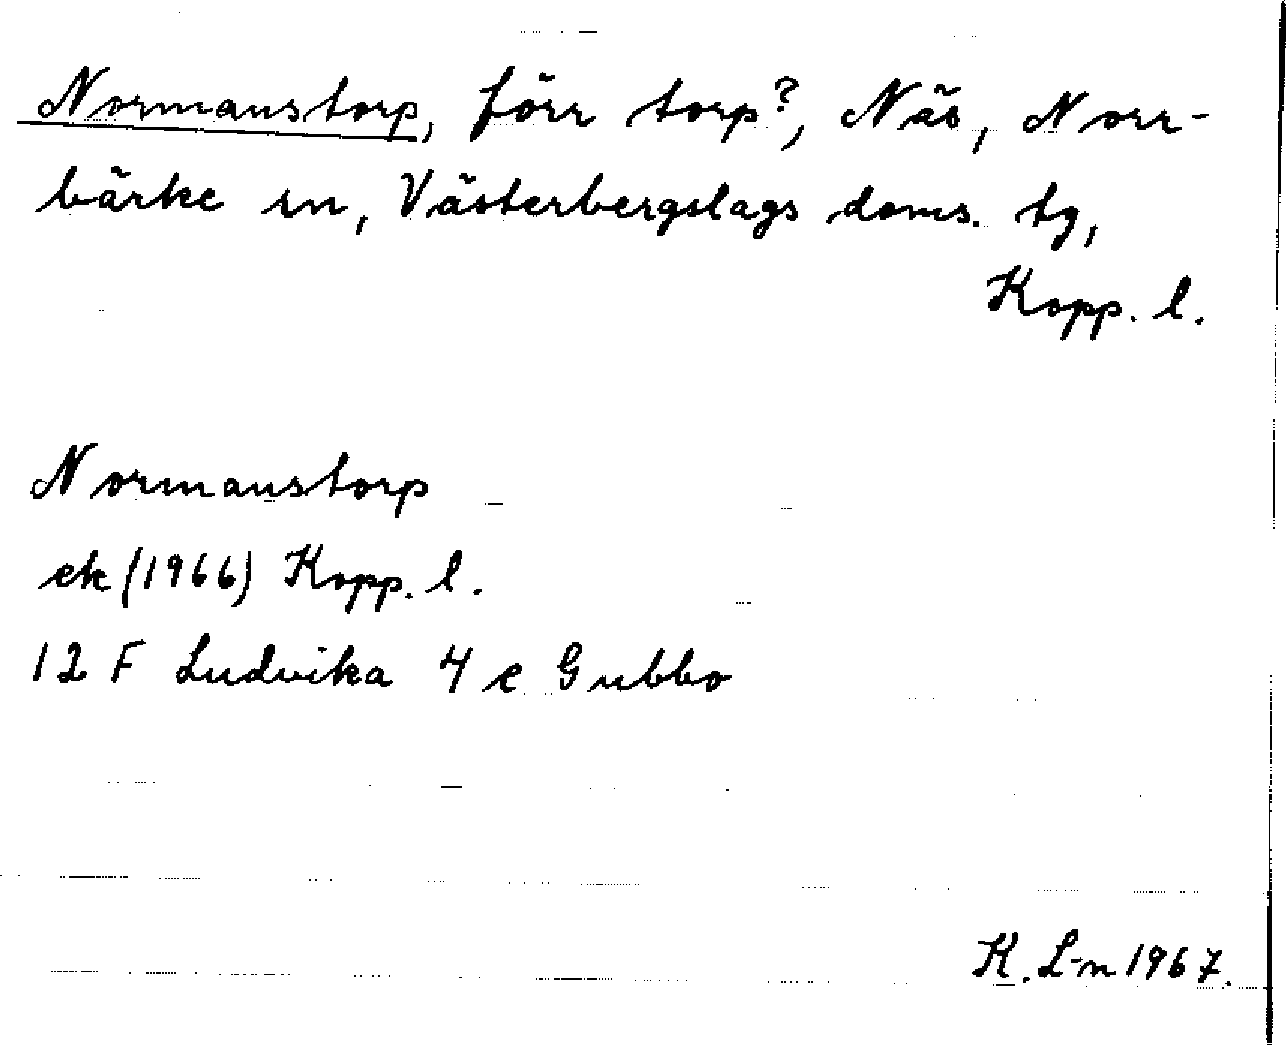 Normanstorp, förr torp?, Näs, Norr-
bärke sn, Västerbergslags doms. tg,
Kopp. l.
Normanstorp
ek (1966) Kopp. l.
12 F Ludvika 4 e Gubbo
K. L-n 1967.